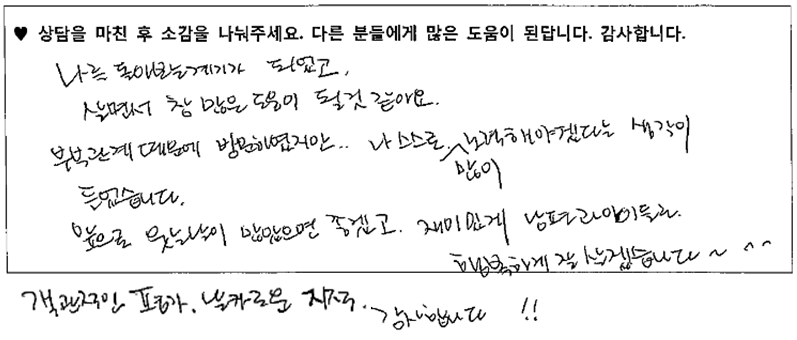 ♥ 상담을 마친 후 소감을 나눠주세요. 다른 분들에게 많은 도움이 된답니다. 감사합니다.
나를 돌아보는계기가 되었고,
살면서 참 많은 도움이 될것 같아요.
부부관계 때문에 방문하였지만.. 나 스스로 많이 노력해야겠다는 생각이
들었습니다.
앞으로 웃는날이 많았으면 좋겠고. 재미있게 남편과아이들과
행복하게 잘 살겠습니다~ ^^
객관적인 평가, 날카로운 지적. 감사합니다 !!